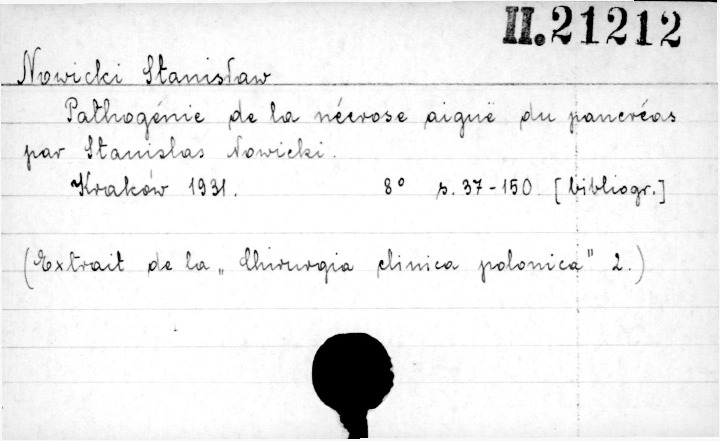 II.21212
Nowicki Stanisław
Pathogénie de la nécrose aiguë du pancréas
par Stanislas Nowicki.
Kraków 1931. 8° s. 37-150 [bibliogr.]
(Extrait de la „Chirurgia clinica polonica" 2.)